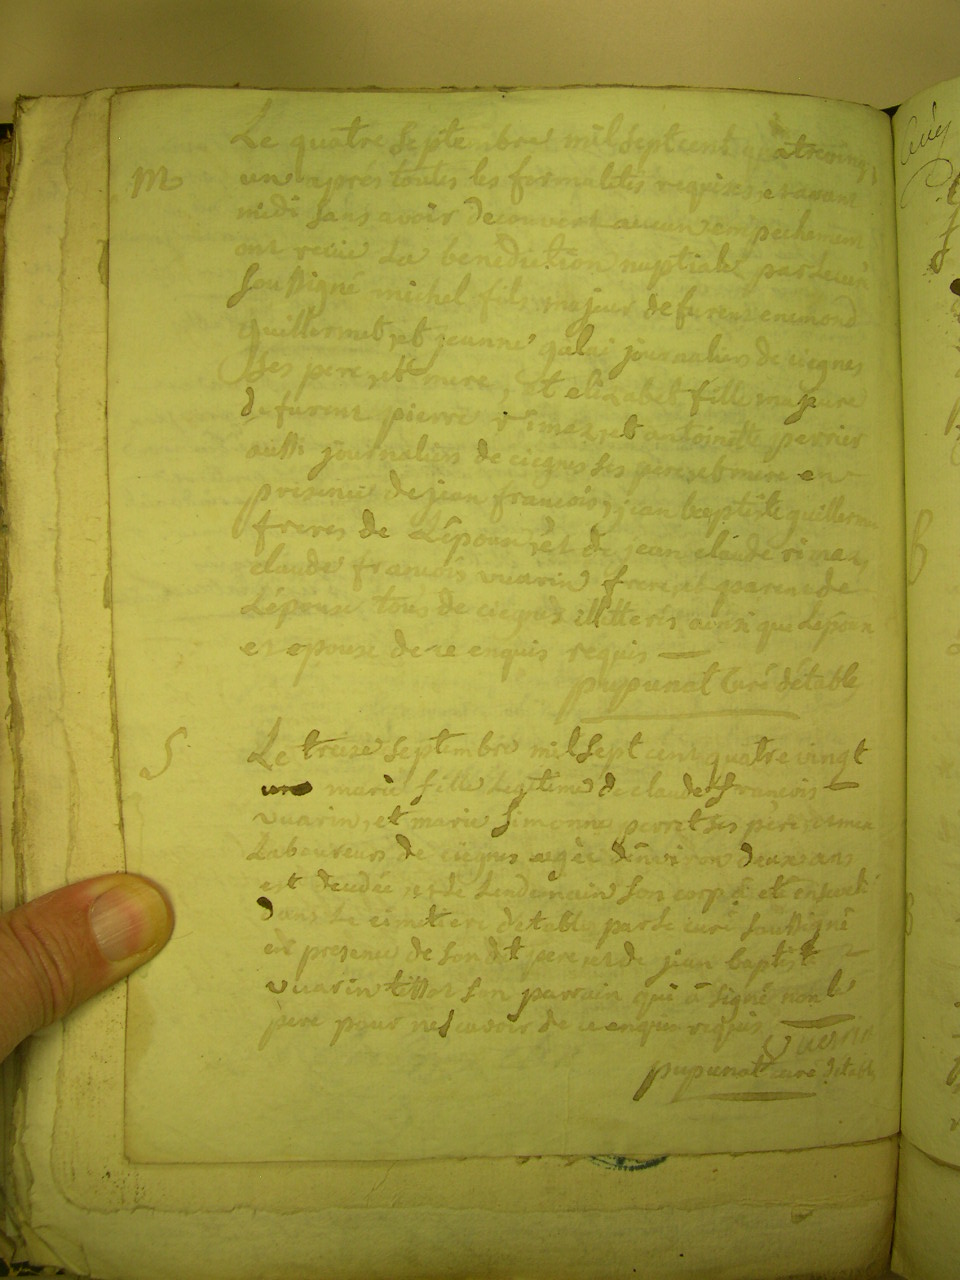 Le quatre Septembre mil sept cent quatrevingt
M
un aprés toutes les formalités requises et avant
midi sans avoir decouvert aucun empechement
ont reciu La benediction nuptiale pardevant
soussigné michel fils majeur de furent enemond
guillermet, et jeanne journaliers de ciegnes
ses pere et mere, et elizabet fille majeure
de furent pierre rimez, et antoinette perrier
aussi journaliers de ciegnes ses père et mere en
présence de jean francois, jean baptiste guillermet
freres de L'époux, et de jean claude rimez,
claude francois vuarin frere, et parent de
L'épouse tous de ciegnes illitterés ainsi que L'époux
et epouse de ce enquis requis
pupunat Curé d'étable
S
Le treize septembre mil sept cent quatre vingt
un marie fille legitime de claude françois
vuarin, et marie simonne perret ses père et mere
Laboureurs de ciegnes agée d'environ deux ans
est decedée, et le Lendemain son corps à eté enseveli
dans Le cimetiere d'etable par le curé soussigné
en presence de son dt pere et de jean baptiste
vuarin tissot son parrain qui à signé non le
pere pour ne scavoir de ce enquis requis
Vuarin
pupunat curé d'etable